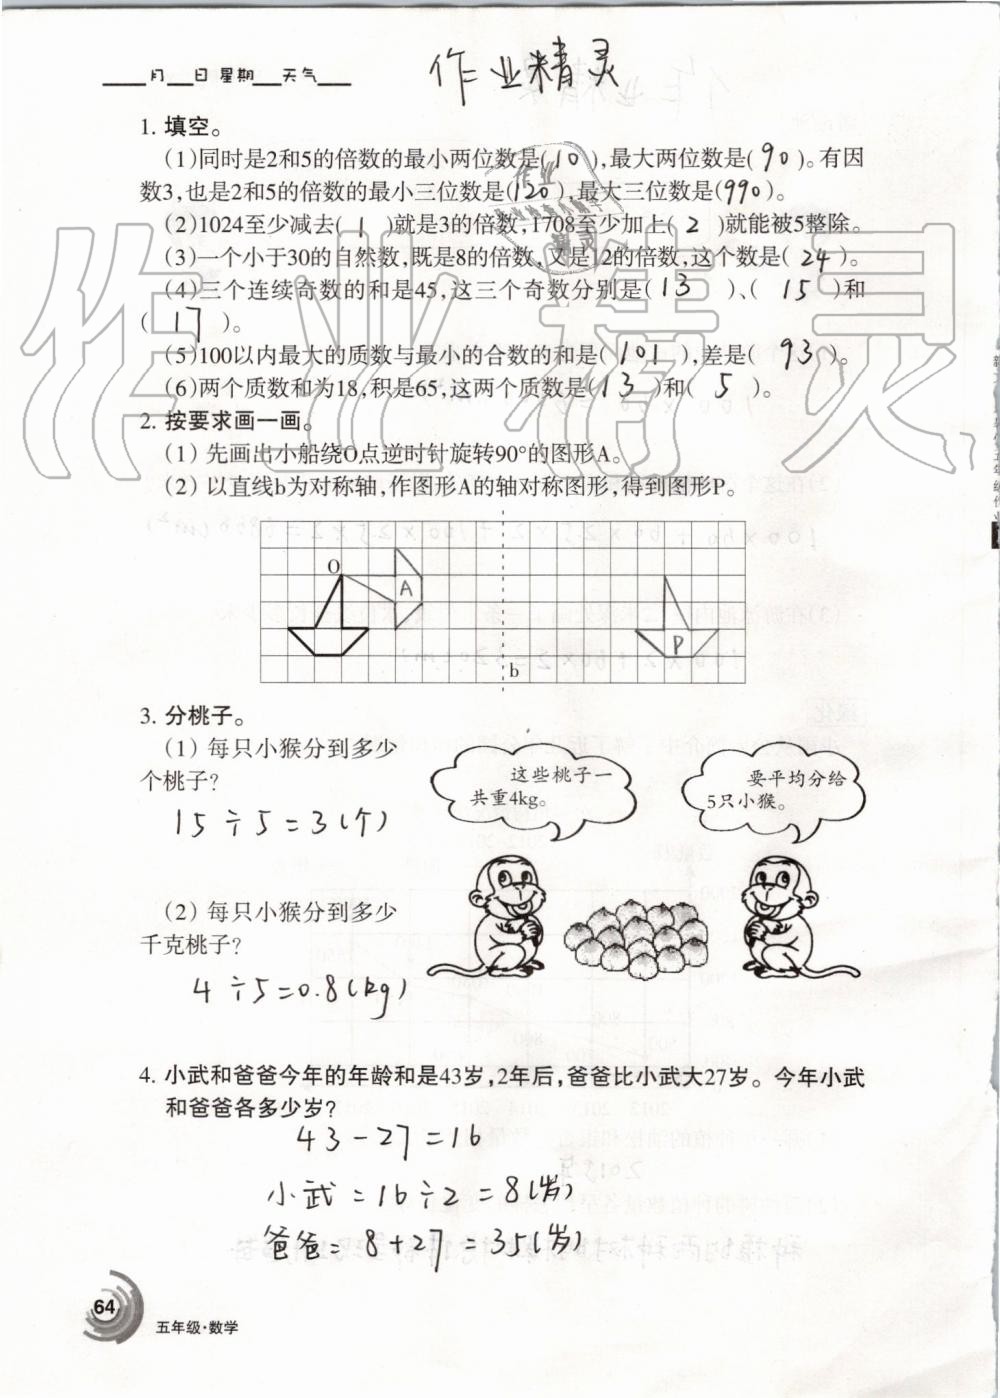 ____月___日 星期___天气___
作业精灵
1. 填空。
(1)同时是2和5的倍数的最小两位数是(10),最大两位数是(90)。有因
数3,也是2和5的倍数的最小三位数是(120),最大三位数是(990)。
(2)1024至少减去( 1 )就是3的倍数,1708至少加上( 2 )就能被5整除。
(3)一个小于30的自然数,既是8的倍数,又是12的倍数,这个数是( 24 )。
(4)三个连续奇数的和是45,这三个奇数分别是( 13 )、( 15 )和
( 17 )。
(5)100以内最大的质数与最小的合数的和是( 101 ),差是( 93 )。
(6)两个质数和为18,积是65,这两个质数是( 13 )和( 5 )。
2. 按要求画一画。
(1) 先画出小船绕O点逆时针旋转90°的图形A。
(2) 以直线b为对称轴,作图形A的轴对称图形,得到图形P。
O
A
P
b
3. 分桃子。
(1) 每只小猴分到多少
个桃子?
15÷5=3(个)
这些桃子一
共重4kg。
要平均分给
5只小猴。
(2) 每只小猴分到多少
千克桃子?
4÷5=0.8(kg)
4. 小武和爸爸今年的年龄和是43岁,2年后,爸爸比小武大27岁。今年小武
和爸爸各多少岁?
43-27=16
小武=16÷2=8(岁)
爸爸=8+27=35(岁)
64
五年级·数学
作业精灵